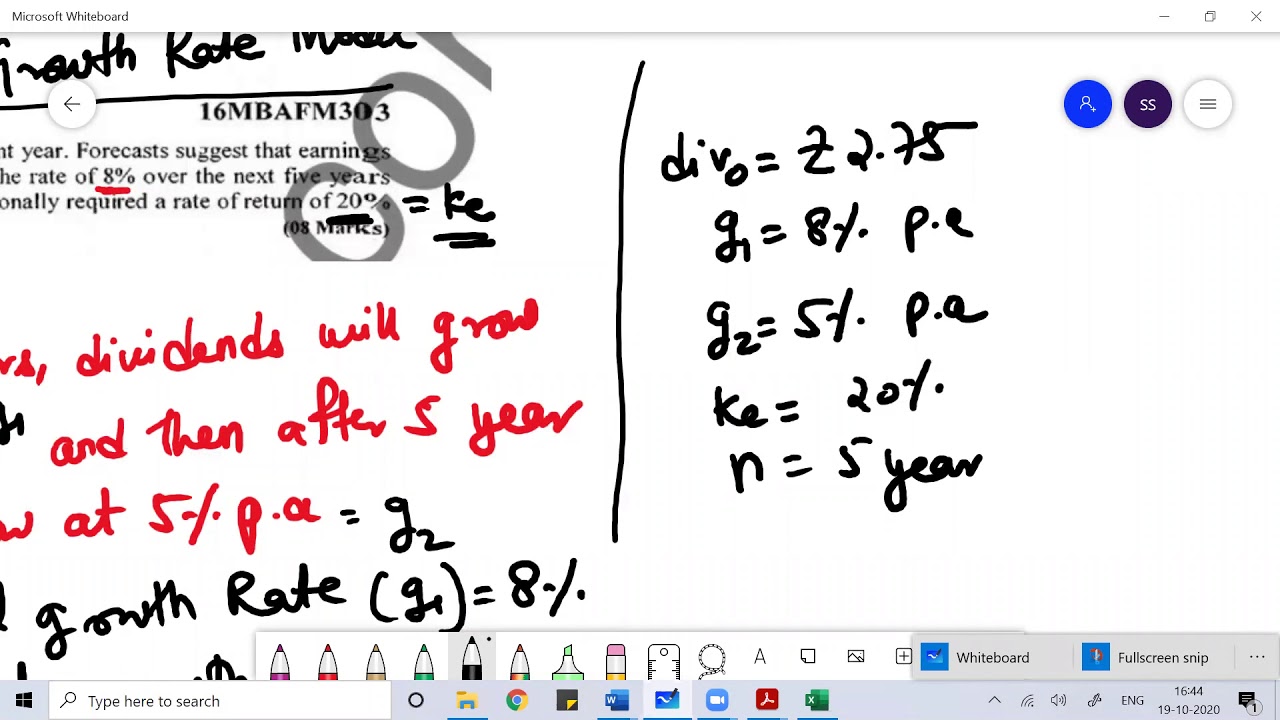 Microsoft Whiteboard
Growth Rate Model
16MBAFM303
nt year. Forecasts suggest that earnings
he rate of 8% over the next five years
onally required a rate of return of 20% = ke
(08 Marks)
rs, dividends will grow
and then after 5 year
w at 5% p.a = g2
growth Rate (g1) = 8%
SS
div0 = ₹ 2.75
g1 = 8% p.a
g2 = 5% p.a
ke = 20%
n = 5 year
Whiteboard
Fullscreen snip
Type here to search
ENG
16:44
19-10-2020
1